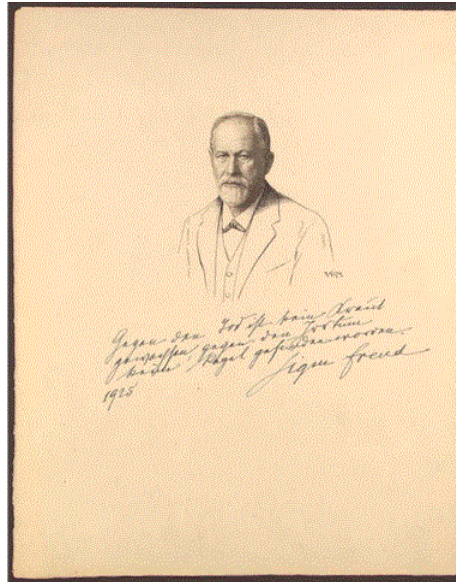 Gegen den Tod ist kein Kraut
gewachsen, gegen den Irrtum
keine Regel gefunden worden.
1925 Sigm Freud